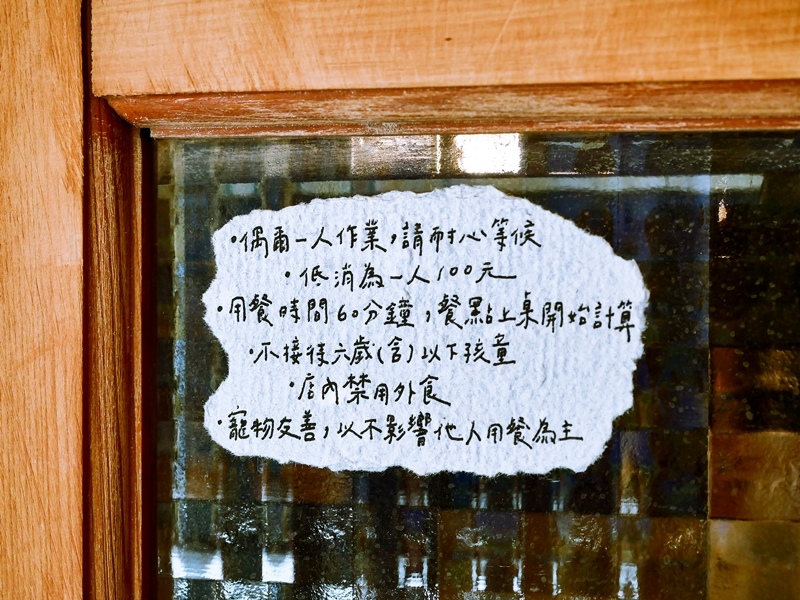 ・偶爾一人作業,請耐心等候
・低消為一人100元
・用餐時間60分鐘,餐點上桌開始計算
・不接待六歲(含)以下孩童
・店內禁用外食
・寵物友善,以不影響他人用餐為主